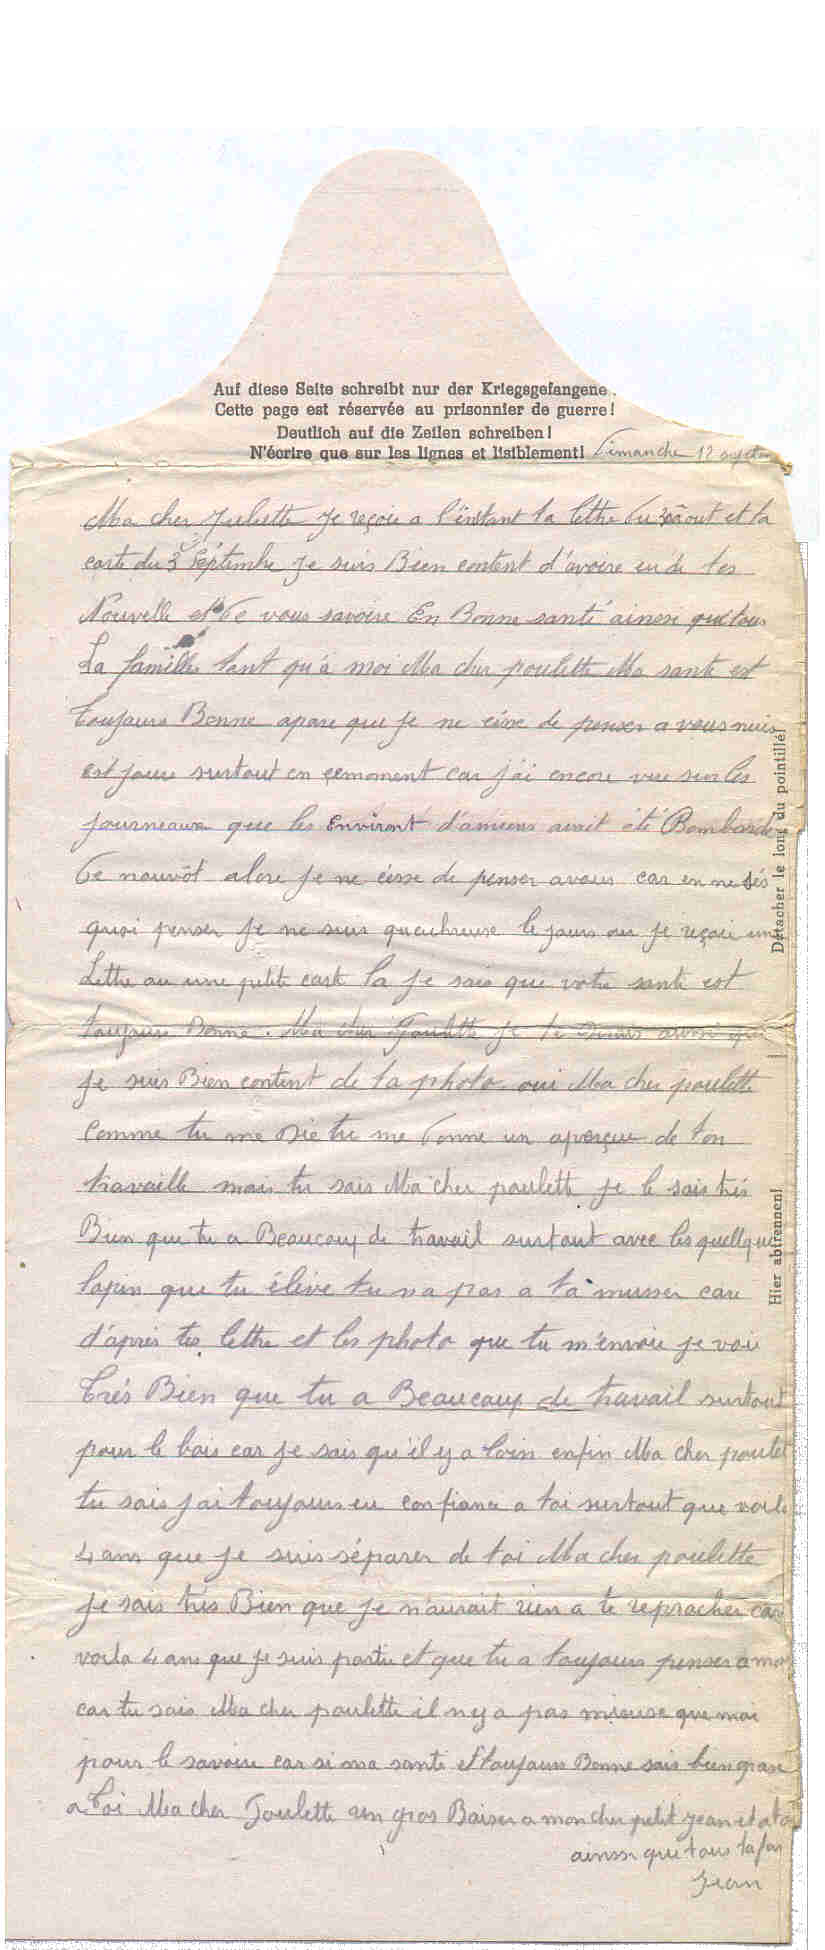 Auf diese Seite schreibt nur der Kriegsgefangene!
Cette page est réservée au prisonnier de guerre!
Deutlich auf die Zeilen schreiben!
N'écrire que sur les lignes et lisiblement! Dimanche 12
Ma cher Juliette Je reçoie a l'instant ta lettre du 30 aout et ta
carte du 3 Septembre Je suis Bien content d'avoire eu de tes
Nouvelle et De vous savoire En Bonne santé ainssi que tous
La famille tant qu'a moi Ma cher poulette Ma sante est
toujours Bonne apare que Je ne cése de penser a vous nuis
est jours surtout en cemoment car j'ai encore vue sur les
journeaux que les Environt d'amiens avait été Bombardé
De nouvôt alore Je ne cesse de penser avous car en ne sés
quoi penser Je ne suis queuhreuse le jours ou Je reçoie une
Lettre ou une petite carte la Je sais que votre sante est
toujours Bonne. Ma cher Poulette Je te
Je suis Bien content de ta photo oui Ma cher poulette
comme tu me Die tu me Donne un aperçue de ton
travaille mais tu sais Ma cher poulette Je le sais trés
Bien que tu a Beaucoup de travail surtout avec les quellque
lapin que tu éleve tu na pas a ta musser care
d'aprés tes lettre et les photo que tu m'envoie je voie
trés Bien que tu a Beaucoup de travail surtout
pour le bois car Je sais qu'il y a loin enfin Ma cher poulet
tu sais j'ai toujours eu confiance a toi surtout que voila
4 ans que Je suis séparer de toi Ma cher poulette
Je sais trés Bien que Je n'aurait rien a te reprocher car
voila 4 ans que Je suis partie et que tu a toujours penser a moi
car tu sais Ma cher poulette il ny a pas mieuse que moi
pour le savoire car si ma sante est toujours Bonne sais bien grase
a toi Ma cher Poulette un gros Baiser a mon cher petit Jean et a toi
ainssi que tous ta fan
Jean
Detacher le long du pointillé!
Hier abtrennen!